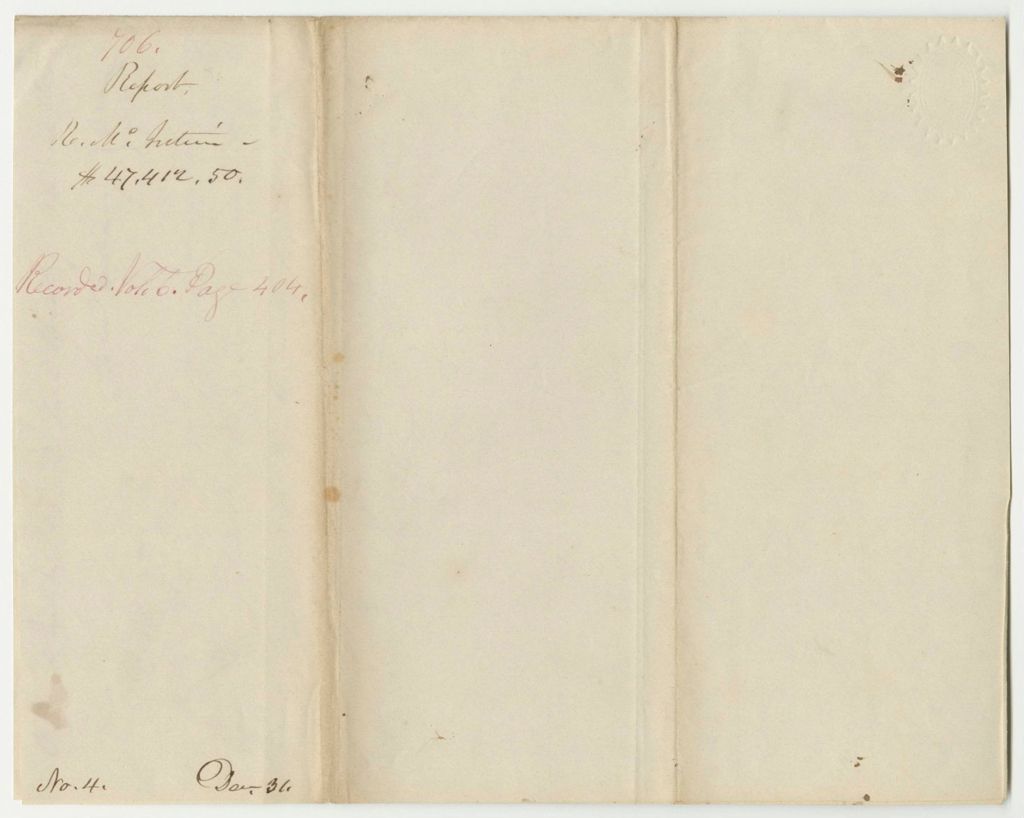 706.
Report.
R. Mc.
$47,412.50.
Recorded. Vol. 6. Page 404.
No. 4. Dec. 31.